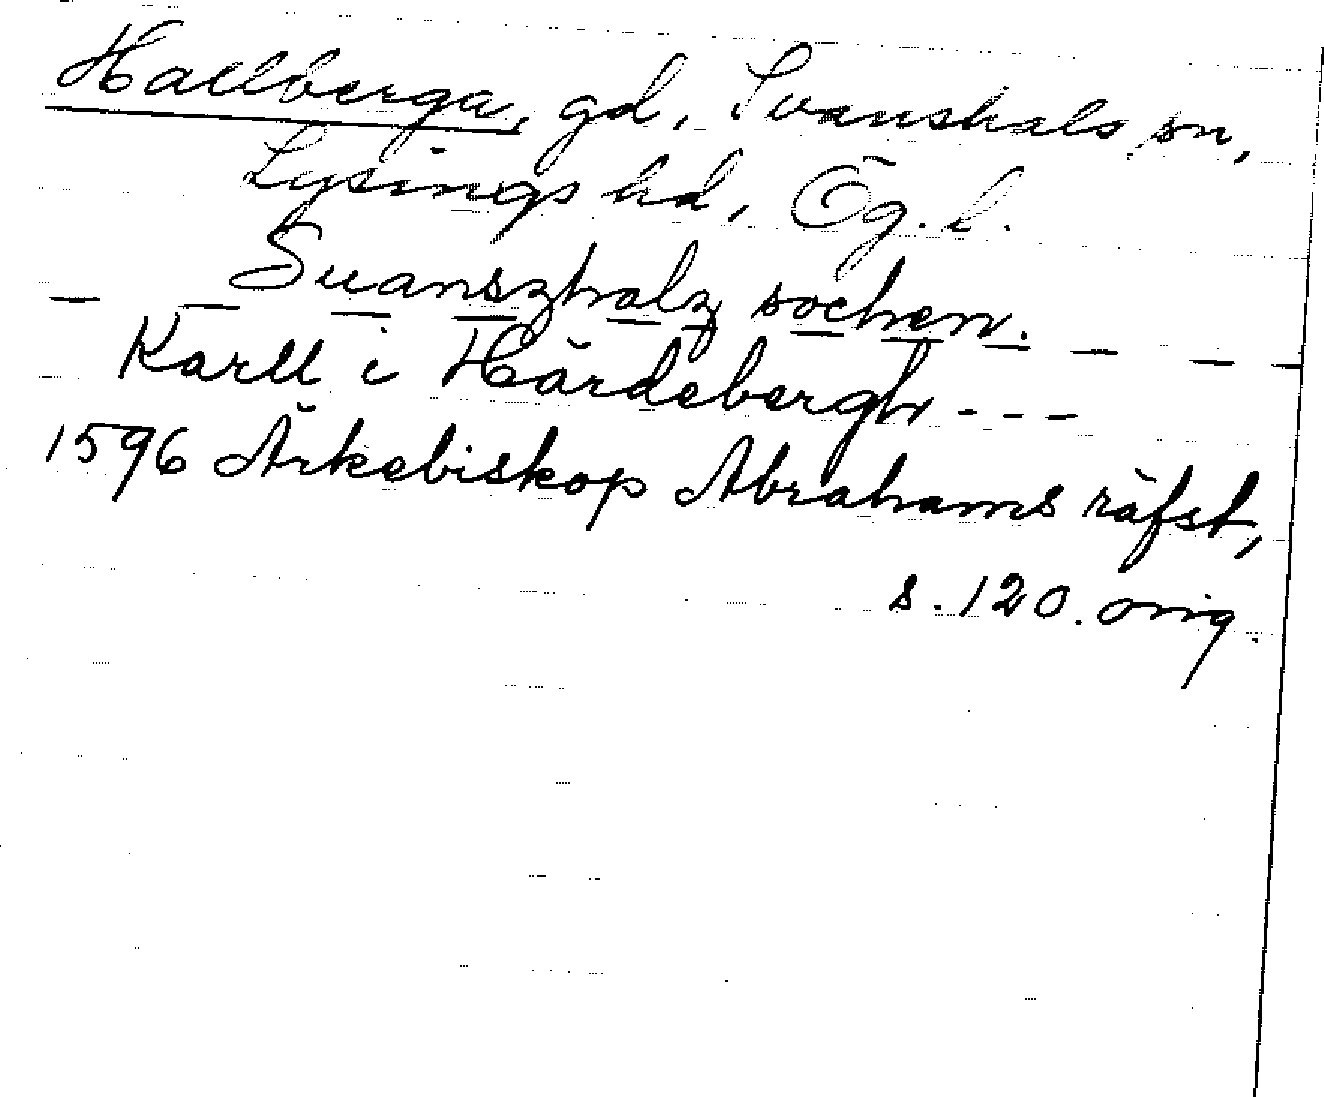 Hallberga, gd, Svanshals sn,
Lysings hd, Ög. l.
Suanszhalz sochen.
Karll i Härdebergh - - -
1596 Ärkebiskop Abrahams räfst,
s. 120. orig.